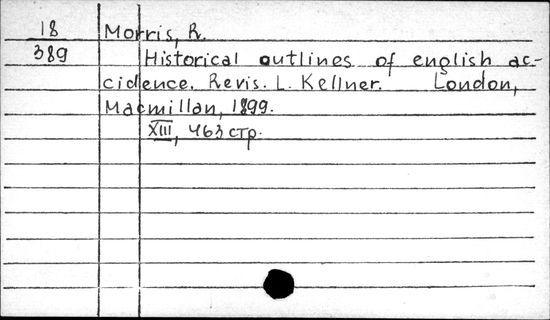 18 Morris, R.
389 Historical outlines of english ac-
cidence. Revis. L. Kellner. London,
Macmillan, 1899.
XIII, 463 стр.